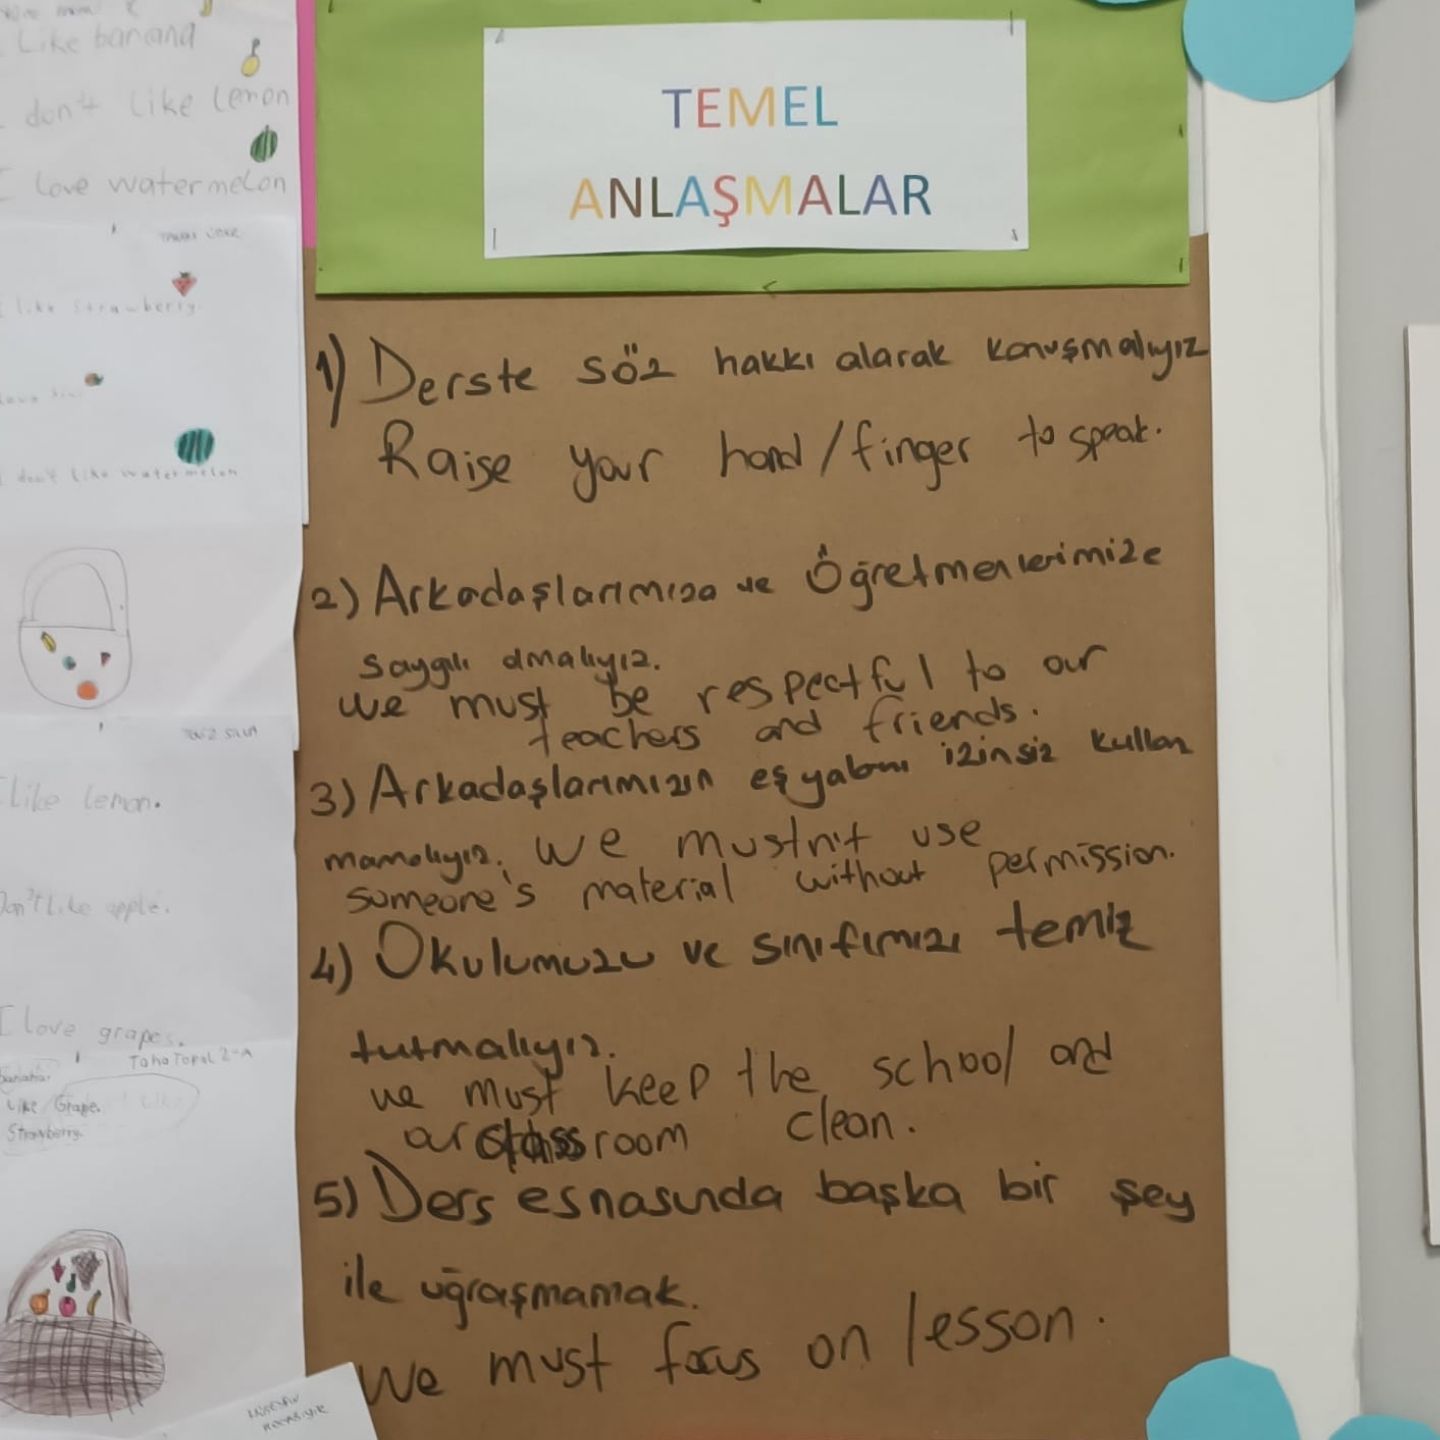 Like banana
I don't like lemon
I love watermelon
I like strawberry
I don't like watermelon
I like lemon.
Don't like apple.
I love grapes.
Taha Topal 2-A
banana.
Like Grape. I like
Strawberry.
TEMEL
ANLAŞMALAR
1) Derste söz hakkı alarak konuşmalıyız
Raise your hand/finger to speak.
2) Arkadaşlarımıza ve Öğretmenlerimize
saygılı olmalıyız.
we must be respectful to our
teachers and friends.
3) Arkadaşlarımızın eşyalarını izinsiz kullan
mamalıyız. we mustn't use
someone's material without permission.
4) Okulumuzu ve sınıfımızı temiz
tutmalıyız.
we must keep the school and
our classroom clean.
5) Ders esnasında başka bir şey
ile uğraşmamak.
We must focus on lesson.